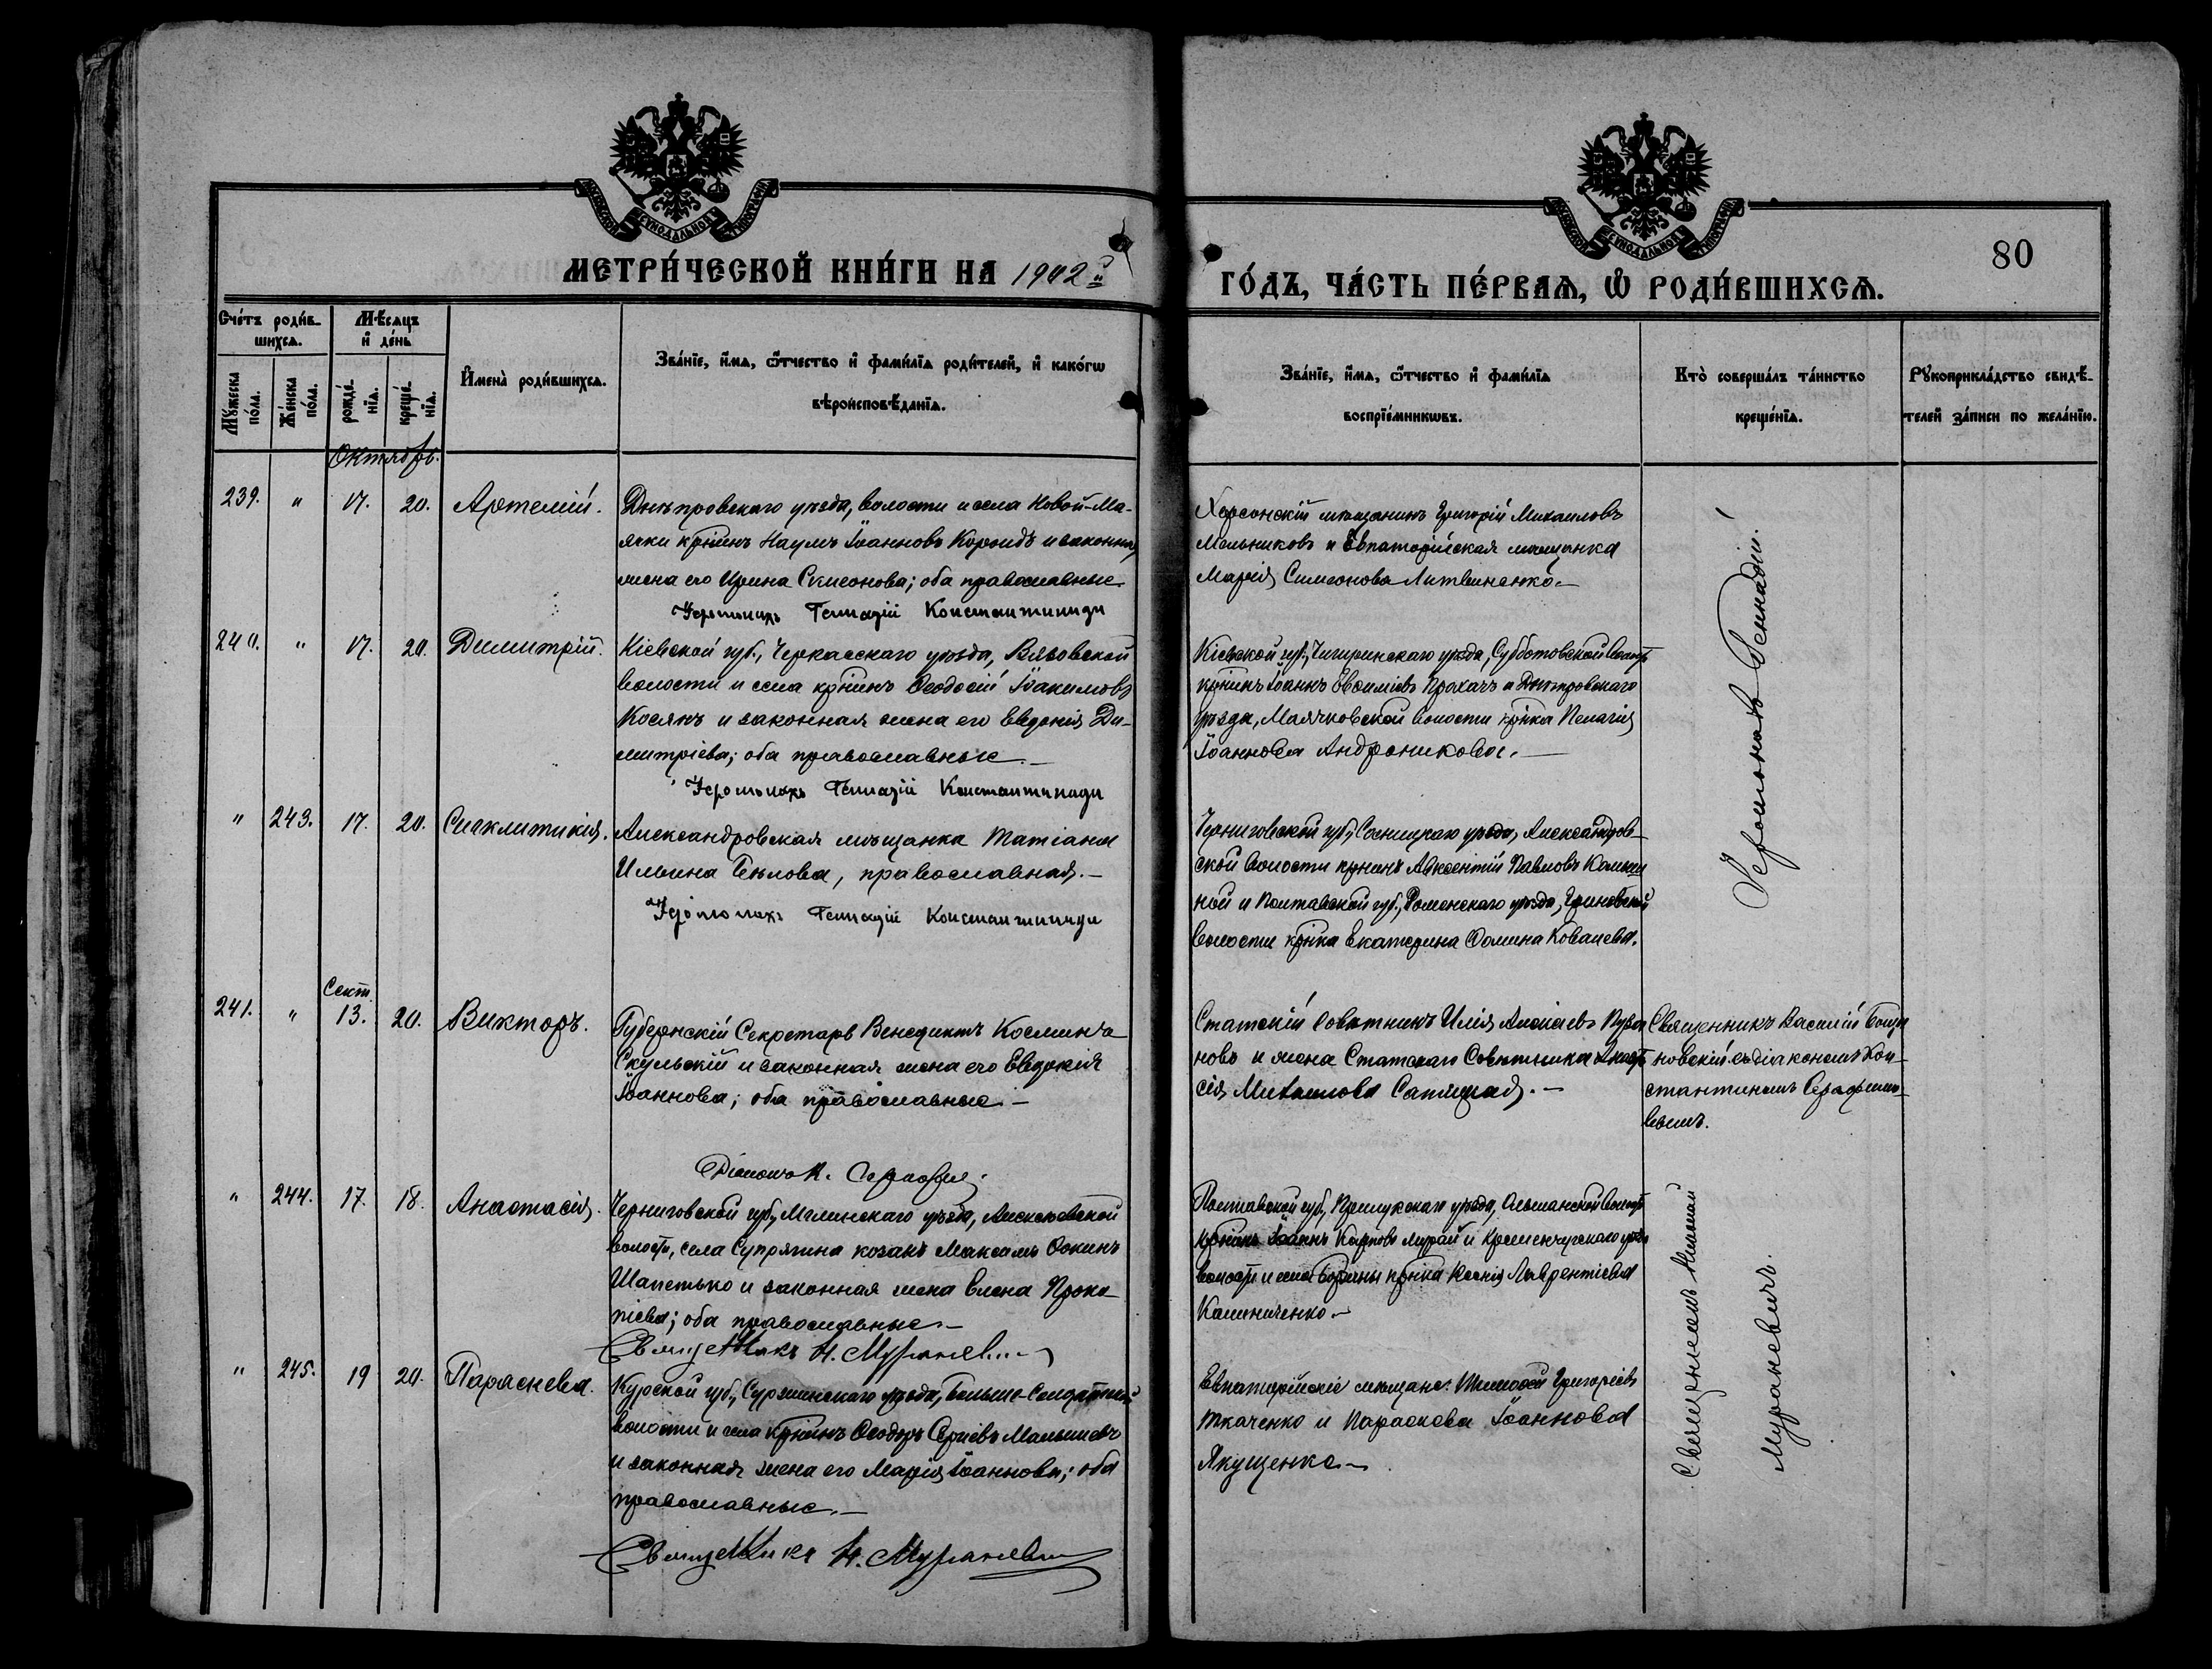 МЕТРИ́ЧЕСКОЙ КНИ́ГИ НА 1902й
ГО́ДЪ, ЧА́СТЬ ПЕ́РВАѦ, Ѡ РОДИ́ВШИХСѦ.
80
Сче́тъ роди́в-
шихсѧ.
Мѣ́сѧцъ
и де́нь
Мꙋ́жеска
по́ла.
Же́нска
по́ла.
рожде́-
нїѧ.
креще́-
нїѧ.
Имена̀ роди́вшихсѧ.
Зва́нїе, и́мѧ, ѻ́тчество и фами́лїѧ роди́телей, и како́гѡ
вѣроисповѣ́данїѧ.
Зва́нїе, и́мѧ, ѻ́тчество и фами́лїѧ
воспрїе́мникѡвъ.
Кто̀ соверша́лъ та́инство
креще́нїѧ.
Рꙋкоприкла́дство свидѣ́-
телей за́писи по жела́нїю.
Октябрь.
239. " 17. 20. Артемій.
Днѣпровскаго уѣзда, волости и села Новой-Ма-
ячки крнинъ Наумъ Іоанновъ Короидъ и законная
жена его Ирина Симеонова; оба православные.
Іеромонахъ Геннадій Константиниди
Херсонскій мѣщанинъ Григорій Михаиловъ
Мельниковъ и Евпаторійская мѣщанка
Марія Симеонова Литвиненко.
Іеромонахъ Геннадій.
240. " 17. 20. Димитрій.
Кіевской губ., Черкасскаго уѣзда, Вязовской
волости и села крнинъ Ѳеодосій Іоакимовъ
Косянъ и законная жена его Евдокія Ди-
митріева; оба православные.
Іеромонахъ Геннадій Константиниди
Кіевской губ., Чигиринскаго уѣзда, Субботовской волости
крнинъ Іоаннъ Евѳиміевъ Прохачъ и Днѣпровскаго
уѣзда, Маячковской волости крнка Пелагія
Іоаннова Андроникова.
" 243. 17. 20. Сигклитикія.
Александровская мѣщанка Татіана
Ильина Бѣлова, православная.
Іеромонахъ Геннадій Константиниди
Черниговской губ., Сосницкаго уѣзда, Александров-
ской волости крнинъ Авксентій Павловъ
и Полтавской губ., Роменскаго уѣзда,
волости крнка Екатерина Ѳомина Ковалева.
Сент.
241. " 13. 20. Викторъ.
Губернскій Секретарь Венедиктъ Космича
Скульскій и законная жена его Евдокія
Іоаннова; оба православные.
Діаконъ К. Серафим
Статскій Совѣтникъ Илія Алексіевъ Пуза
новъ и жена Статскаго Совѣтника Анаста
сія Михаилова
Священникъ Василій
новскій съ діакономъ Кон-
стантиномъ Серафимо-
вымъ.
" 244. 17. 18. Анастасія.
Черниговской губ., Мглинскаго уѣзда, Алексѣевской
волости, села Супрягина козакъ Максимъ Ѳокинъ
Шапетько и законная жена Елена Проко-
піева; оба православные.
Священникъ Н. Мураневичъ
Полтавской губ., Прилукскаго уѣзда, Ольшанской волости
крнинъ Іоаннъ Карповъ Мурай и Кременчугскаго уѣзда
волости и села крнка Ксенія Лаврентіева
Калиниченко.
Священникъ Николай
Мураневичъ.
" 245. 19 20. Параскева.
Курской губ., Суджанскаго уѣзда, Больше-Солдатской
волости и села крнинъ Ѳеодоръ Сергіевъ Малышевъ
и законная жена его Марія Іоаннова; оба
православные.
Священникъ Н. Мураневичъ
Евпаторійскіе мѣщане: Тимоѳей Григоріевъ
Ткаченко и Параскева Іоаннова
Якущенко.